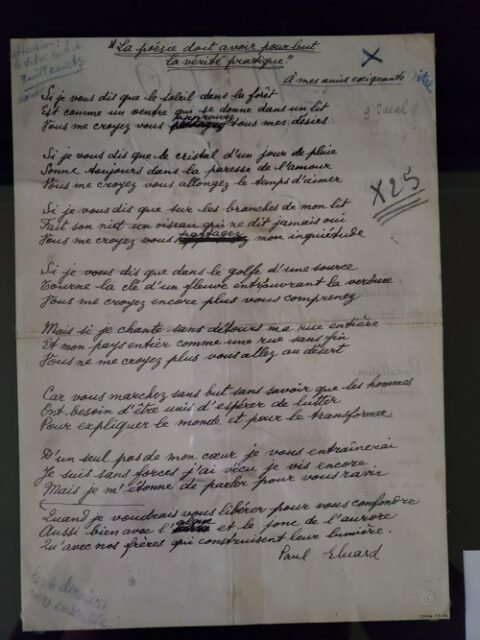 "La poésie doit avoir pour but
la vérité pratique"
À mes amis exigeants
Si je vous dis que le soleil dans la forêt
Est comme un ventre qui se donne dans un lit
Vous me croyez vous approuvez tous mes désirs
Si je vous dis que le cristal d'un jour de pluie
Sonne toujours dans la paresse de l'amour
Vous me croyez vous allongez le temps d'aimer
X25
Si je vous dis que sur les branches de mon lit
Fait son nid un oiseau qui ne dit jamais oui
Vous me croyez vous partagez mon inquiétude
Si je vous dis que dans le golfe d'une source
Tourne la clé d'un fleuve entr'ouvrant la verdure
Vous me croyez encore plus vous comprenez
Mais si je chante sans détours ma rue entière
Et mon pays entier comme une rue sans fin
Vous ne me croyez plus vous allez au désert
Car vous marchez sans but sans savoir que les hommes
Ont besoin d'être unis d'espérer de lutter
Pour expliquer le monde et pour le transformer
D'un seul pas de mon cœur je vous entraînerai
Je suis sans forces j'ai vécu je vis encore
Mais je m'étonne de parler pour vous ravir
Quand je voudrais vous libérer pour vous confondre
Aussi bien avec l'algue et le jonc de l'aurore
Qu'avec nos frères qui construisent leur lumière.
Paul Eluard
6 derniers
vers ensemble